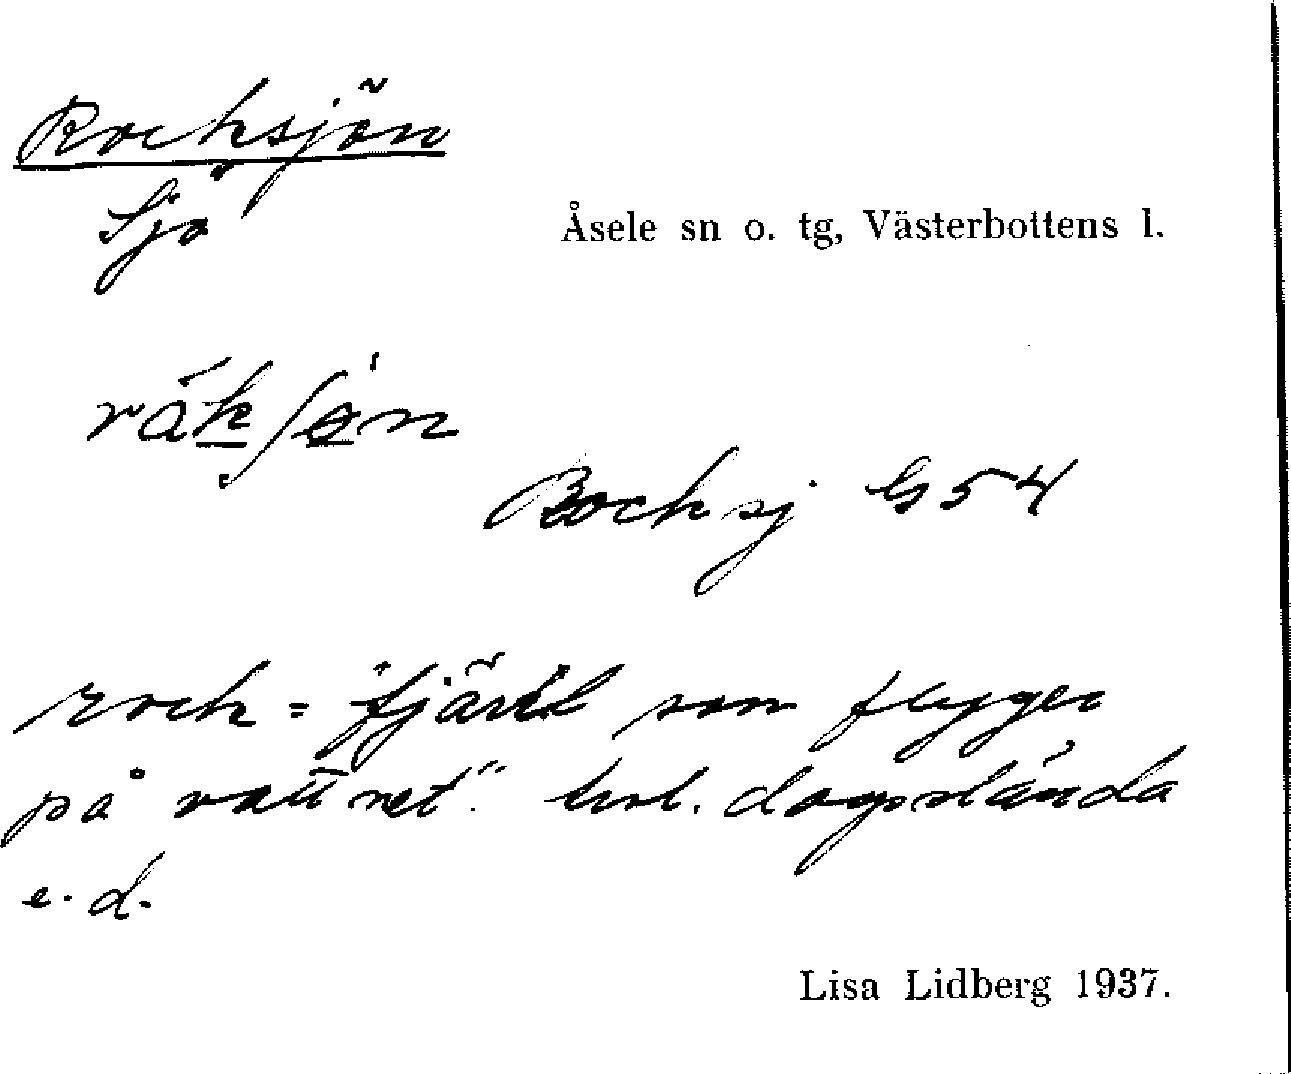 Rocksjön
Sjö
Åsele sn o. tg, Västerbottens l.
råksjøn
Bocksj G54
rock = "fjäril som flyger
på vattnet". trol. dagslända
e. d.
Lisa Lidberg 1937.